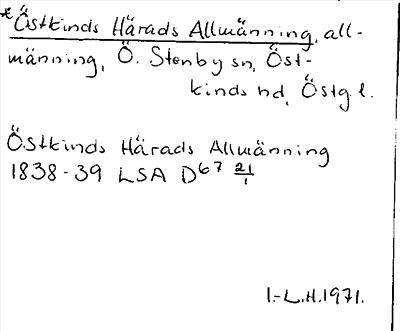 *Östkinds Härads Allmänning, all-
männing, Ö. Stenby sn, Öst-
kinds hd, Östg l.
Östkinds Härads Allmänning
1838-39 LSA D67 21/1
I.-L.H.1971.